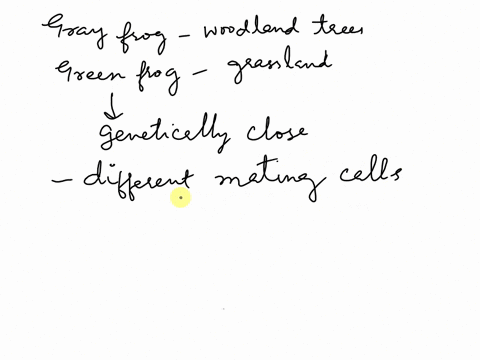 Gray frog - woodland trees
Green frog - grassland
↓
genetically close
- different mating calls